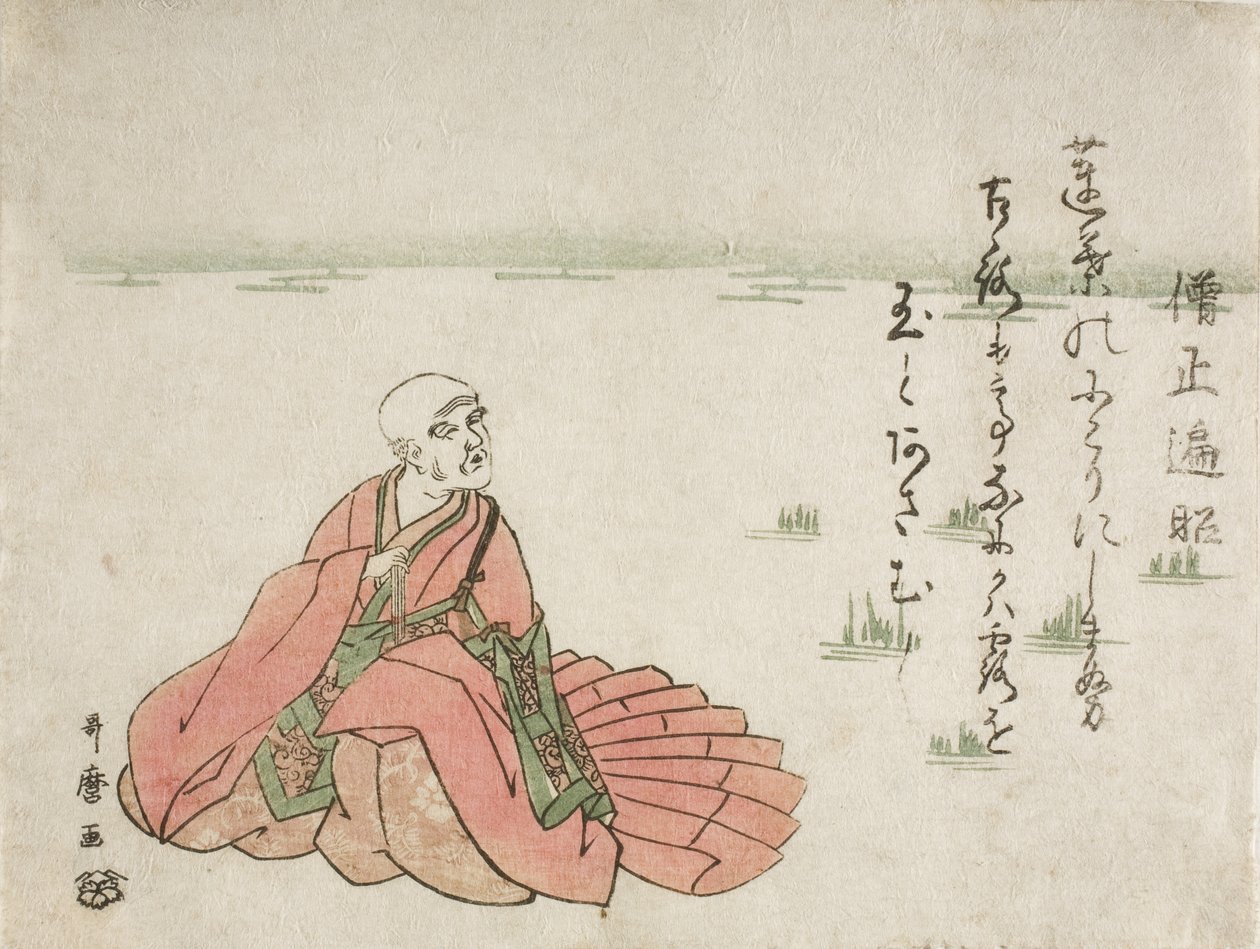 僧正遍昭
蓮葉のにこりにしまぬ
こころもてなにかハ露を
玉とあさむく
哥麿画